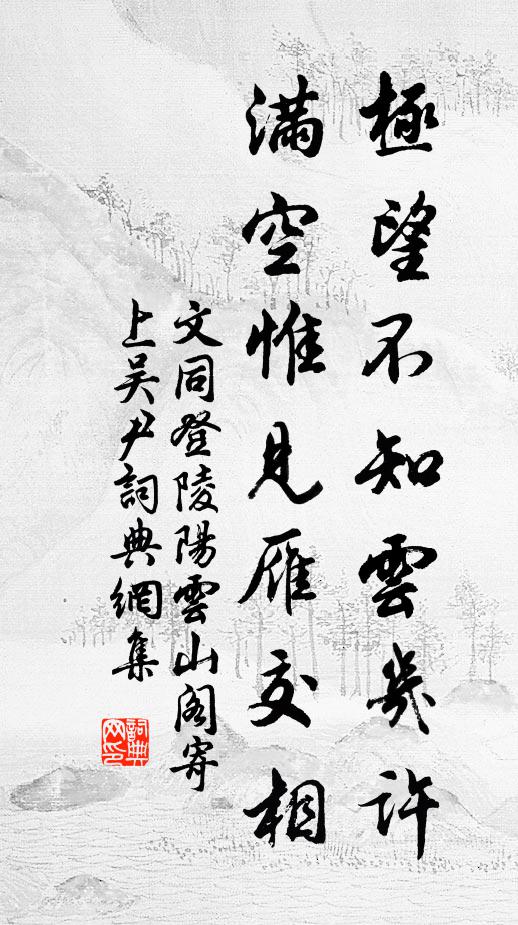 極望不知雲幾許
滿空惟見雁交相
文同登陵陽雲山閣寄
上吳尹詞典網集
詞典
网印